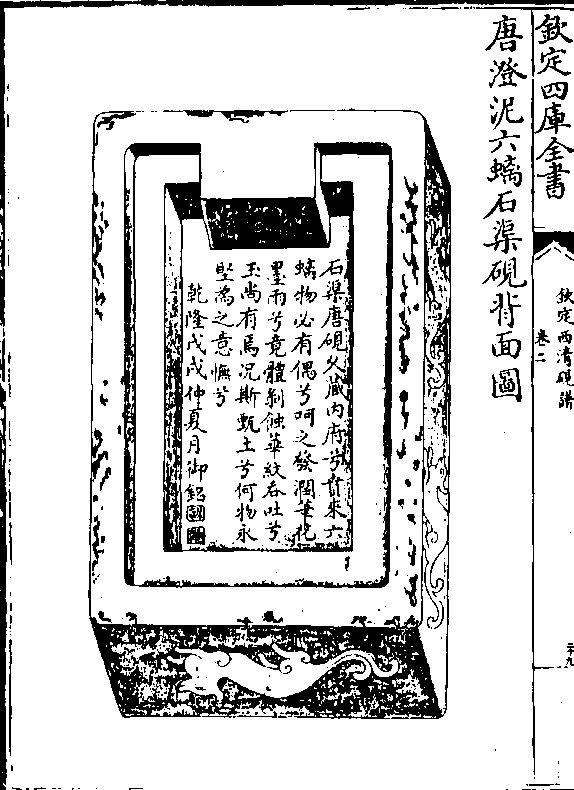 欽定四庫全書
欽定西清硯譜
卷二
二十九
唐澄泥六螭石渠硯背面圖
石渠唐硯久藏内府兮貢來六
螭物必有偶兮呵之發潤華花
墨雨兮竟體剥蝕華紋吞吐兮
玉尚有焉况斯甄土兮何物永
堅為之意憮兮
乾隆戊戌仲夏月御銘